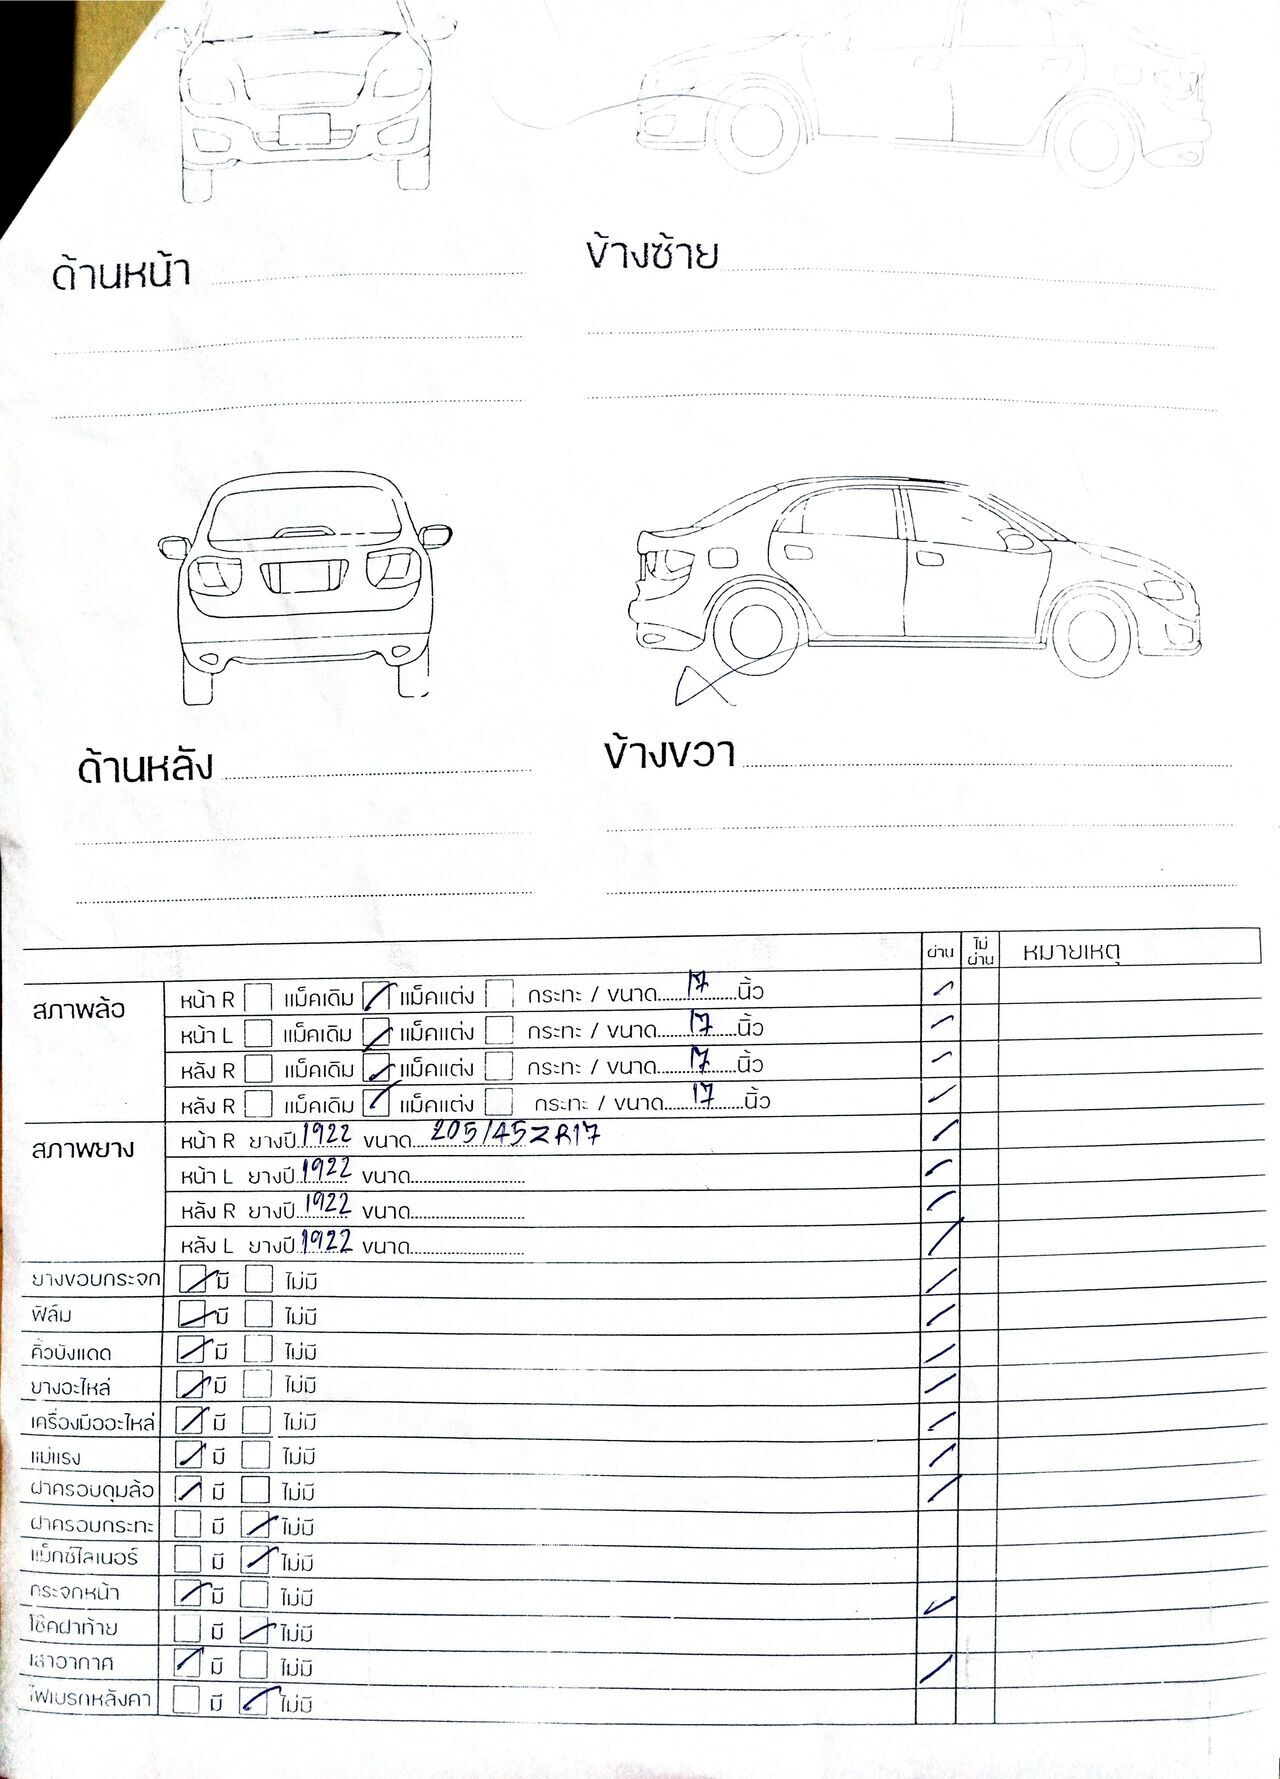 ด้านหน้า
ข้างซ้าย
ด้านหลัง
ข้างขวา
ผ่าน ไม่ผ่าน หมายเหตุ
สภาพล้อ หน้า R แม็คเดิม แม็คแต่ง กระทะ / ขนาด 17 นิ้ว
หน้า L แม็คเดิม แม็คแต่ง กระทะ / ขนาด 17 นิ้ว
หลัง R แม็คเดิม แม็คแต่ง กระทะ / ขนาด 17 นิ้ว
หลัง R แม็คเดิม แม็คแต่ง กระทะ / ขนาด 17 นิ้ว
สภาพยาง หน้า R ยางปี 1922 ขนาด 205/45ZR17
หน้า L ยางปี 1922 ขนาด
หลัง R ยางปี 1922 ขนาด
หลัง L ยางปี 1922 ขนาด
ยางขอบกระจก มี ไม่มี
ฟิล์ม มี ไม่มี
คิ้วบังแดด มี ไม่มี
ยางอะไหล่ มี ไม่มี
เครื่องมืออะไหล่ มี ไม่มี
แม่แรง มี ไม่มี
ฝาครอบดุมล้อ มี ไม่มี
ฝาครอบกระทะ มี ไม่มี
แม็กซ์ไลเนอร์ มี ไม่มี
กระจกหน้า มี ไม่มี
โช๊คฝาท้าย มี ไม่มี
เสาอากาศ มี ไม่มี
ไฟเบรกหลังคา มี ไม่มี